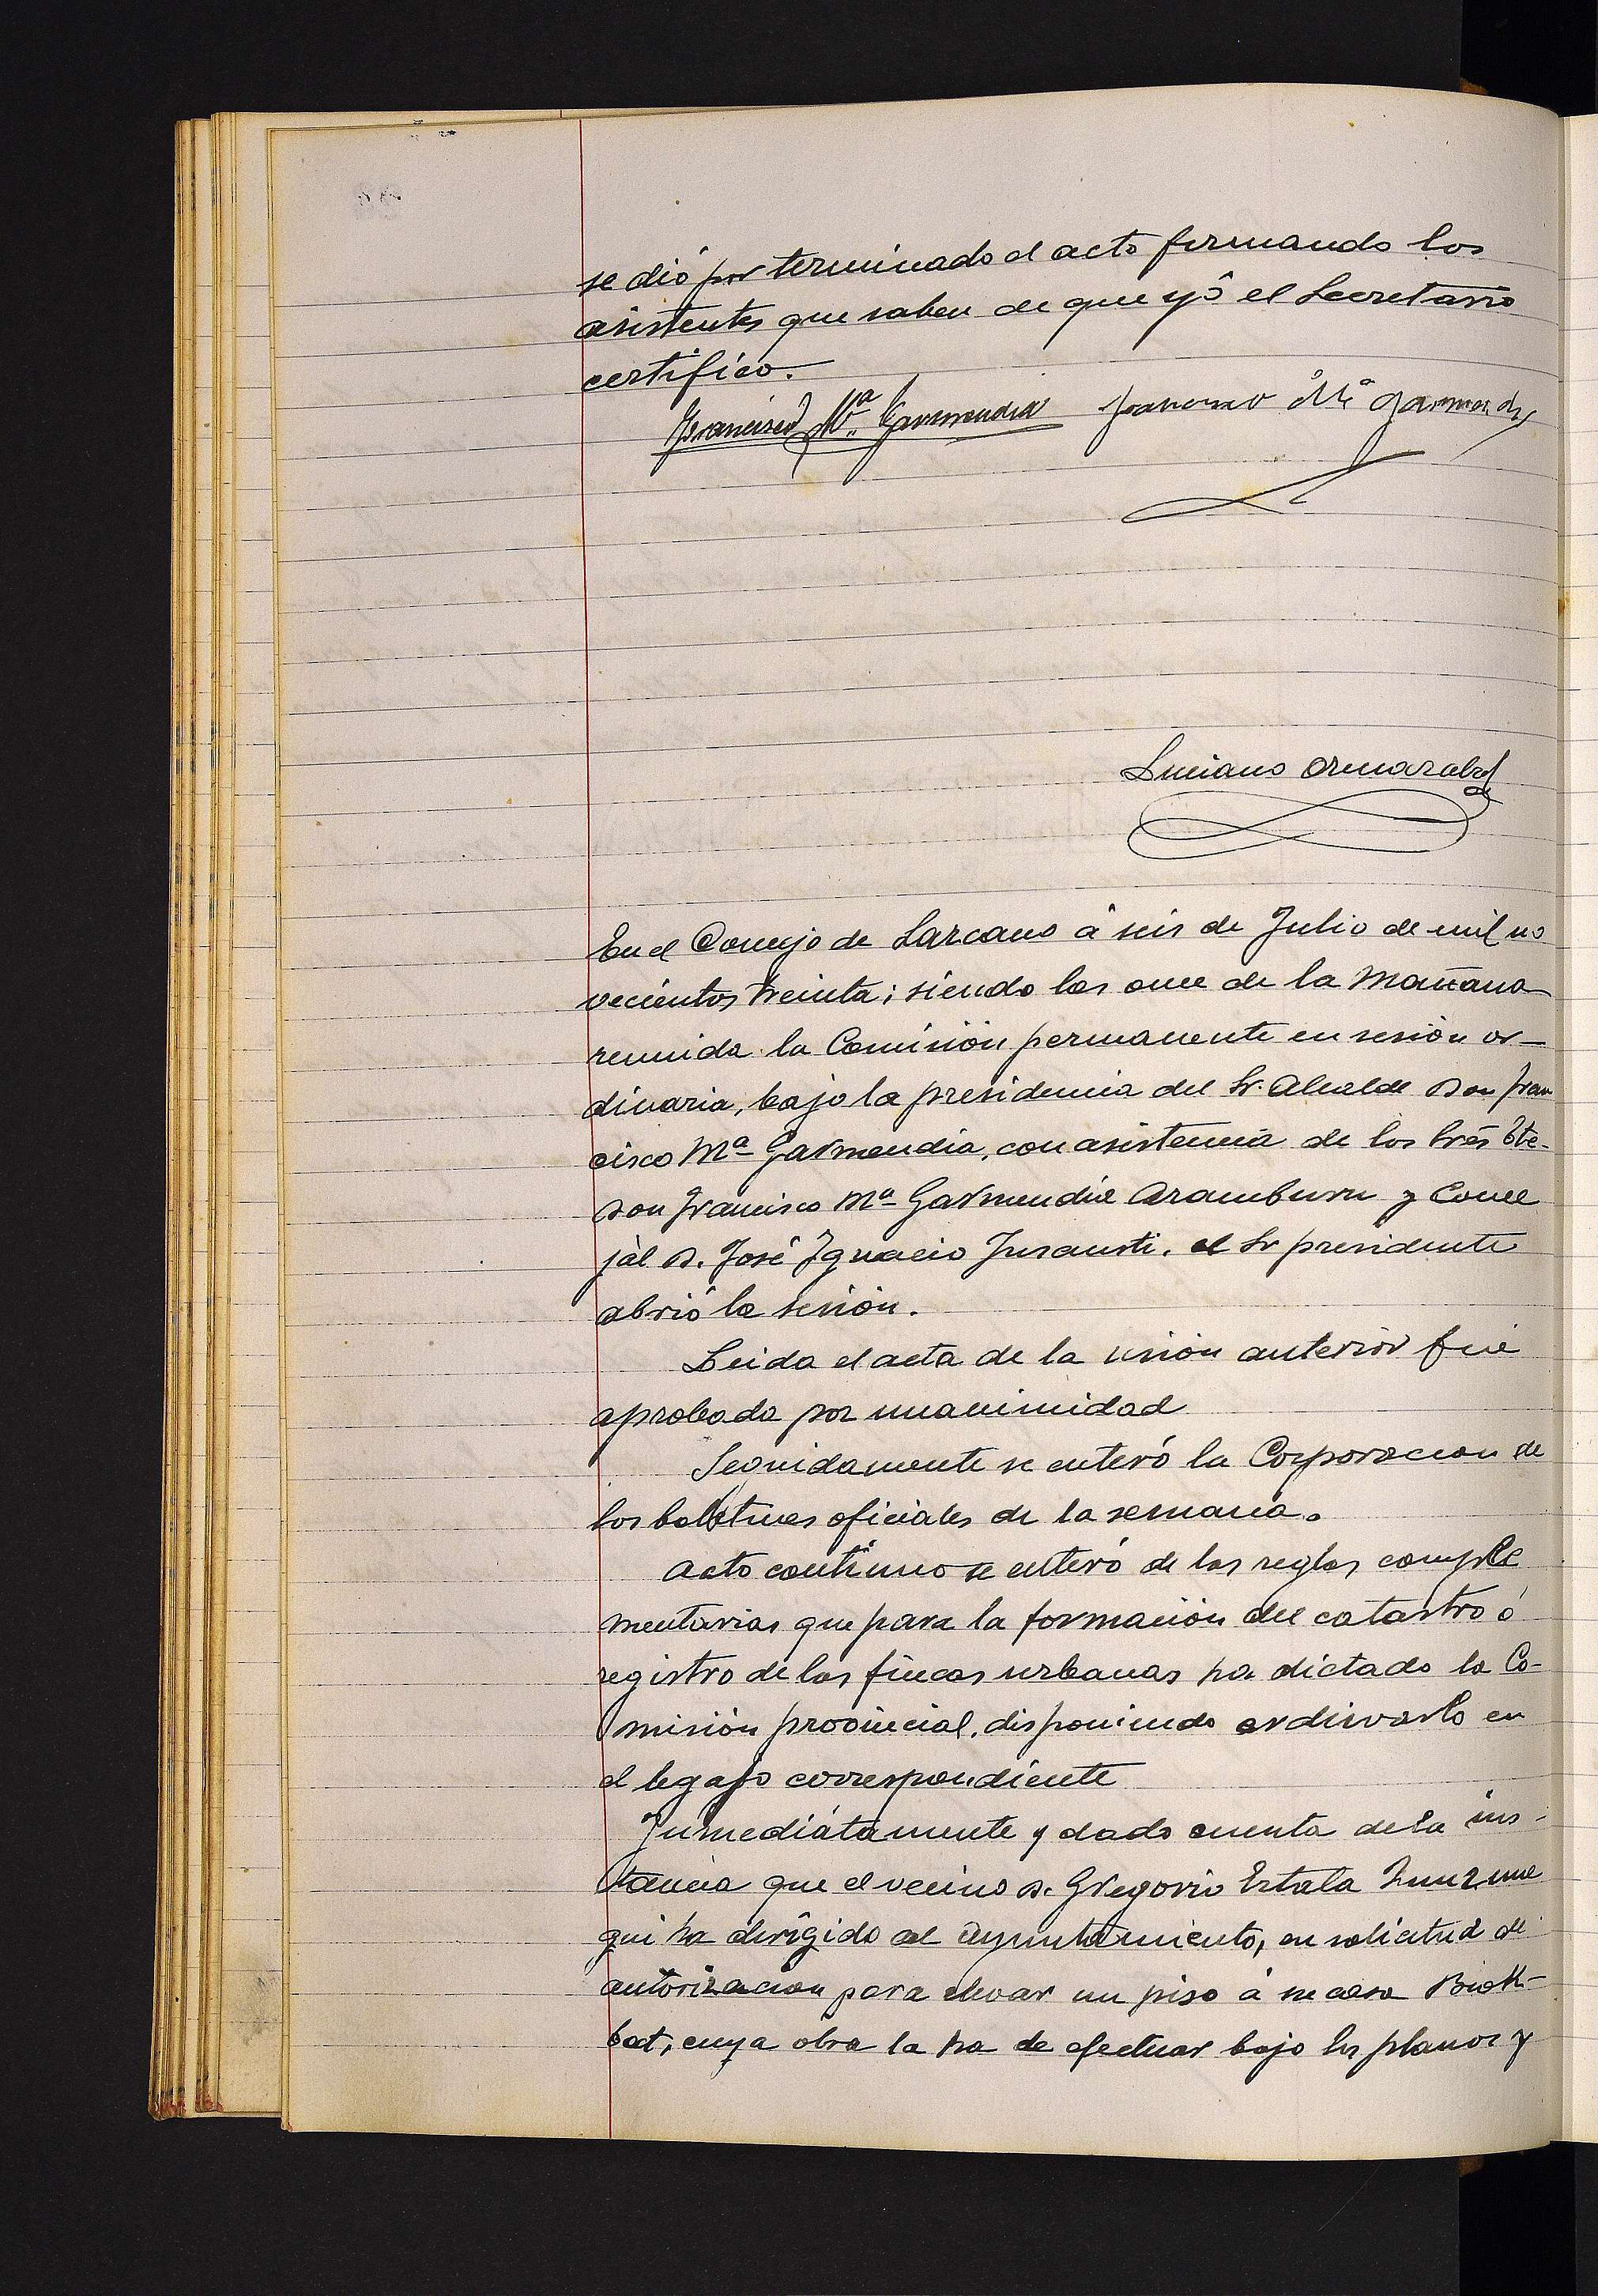 se dió por terminado el acto firmando los
asistentes que saben de que yó el Secretario
certifico.
Francisco Mª Garmendia Francisco Mª Garmendia
Luciano Ormazabal
En el Concejo de Lazcano á seis de Julio de mil no
vecientos treinta; siendo las once de la mañana
reunida la Comisión permanente en sesión or-
dinaria, bajo la presidencia del Sr. Alcalde Don Fran
cisco Mª Garmendia, con asistencia de los Srés Tte.
Don Francisco Mª Garmendia Aramburu y Conce
jál D. José Ignacio Insausti. el Sr presidente
abrió la sesión.
Leida el acta de la sesión anterior fué
aprobada por unanimidad
Seguidamente se enteró la Corporacion de
los boletines oficiales de la semana.
Acto continuo se enteró de las reglas comple
mentarias que para la formación del catastro ó
registro de las fincas urbanas ha dictado la Co-
misión provincial, disponiendo archivarlo en
el legajo correspondiente
Inmediátamente y dado cuenta de la ins-
tancia que el vecino D. Gregorio Estala
que ha dirigido al Ayuntamiento, en solicitud de
autorizacion para elevar un piso á su casa
bat, cuya obra la ha de efectuar bajo los planos y